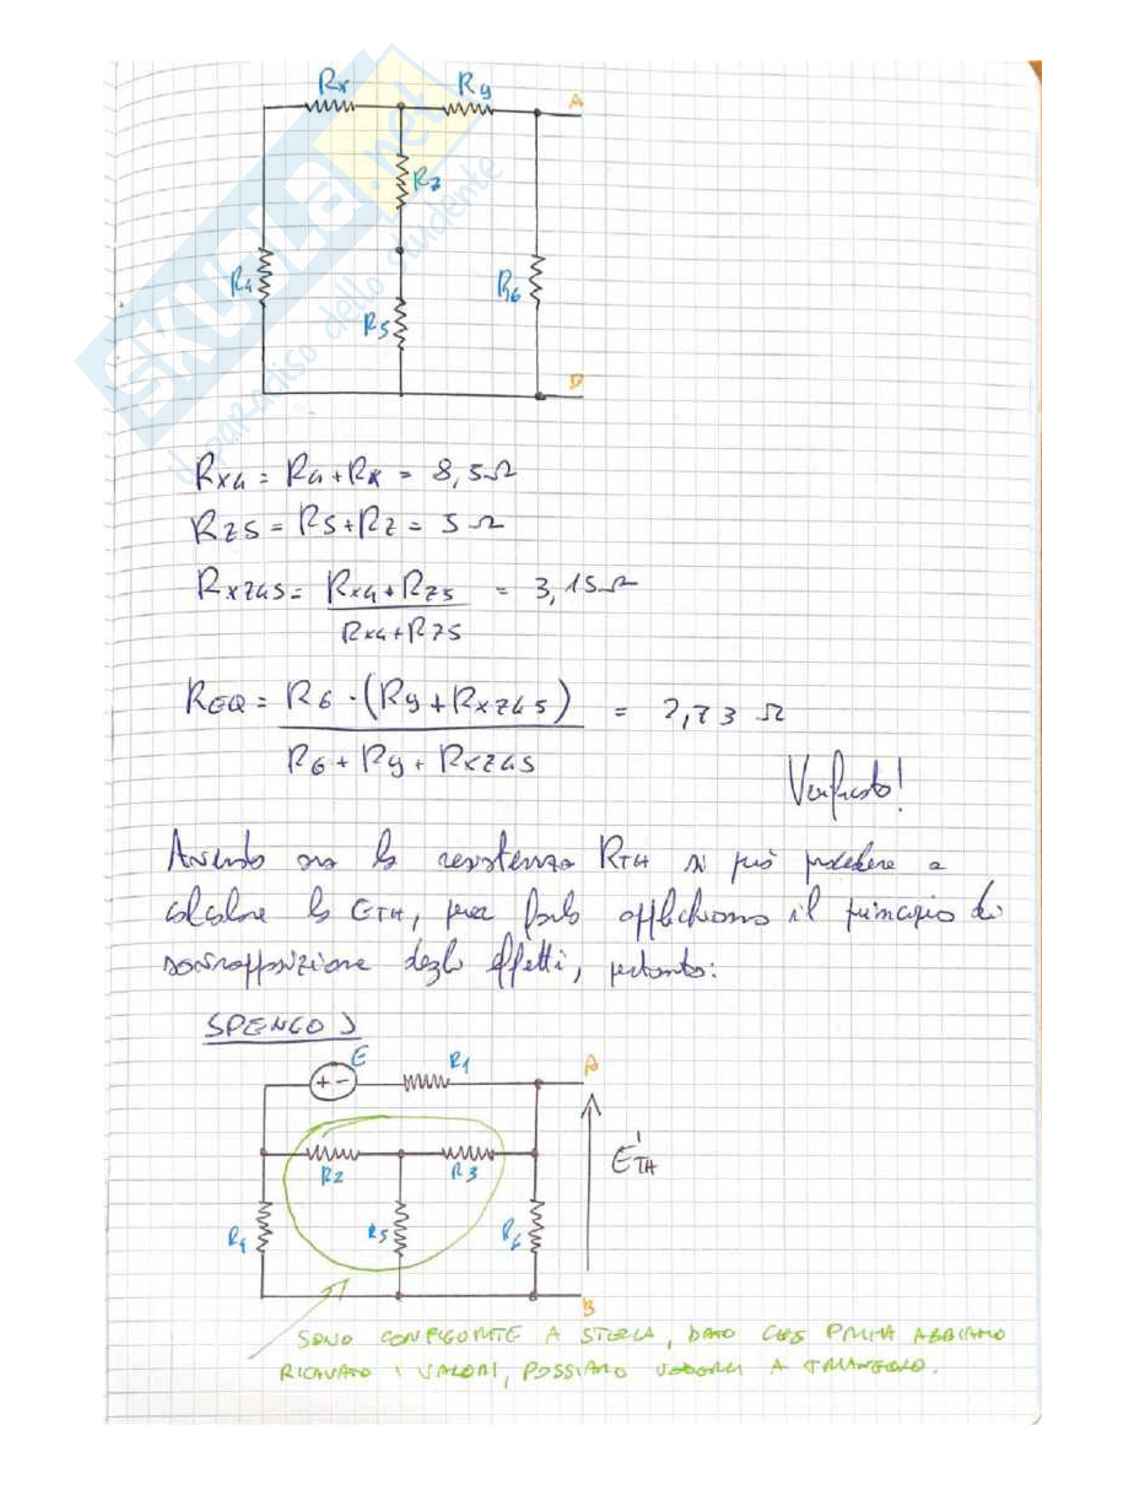 SKUOLA.net
il paradiso dello studente
Rx
Ry
A
Rz
R4
R6
R5
B
Rx4 = R4 + Rx = 8,5Ω
Rz5 = R5 + Rz = 5 Ω
Rxz45 = Rx4 + Rz5 = 3,15Ω
Rx4 + Rz5
REQ = R6 · (Ry + Rxz45) = 2,73 Ω
R6 + Ry + Rxz45
Verificato!
Avendo ora la resistenza RTH si può procedere a
calcolare la ETH, per farlo applichiamo il principio di
sovrapposizione degli effetti, pertanto:
SPENGO J
E
R1
A
+ -
E'TH
R2
R3
R4
R5
R6
B
SONO CONFIGURATE A STELLA, DATO CHE PRIMA ABBIAMO
RICAVATO I VALORI, POSSIAMO VEDERLI A TRIANGOLO.